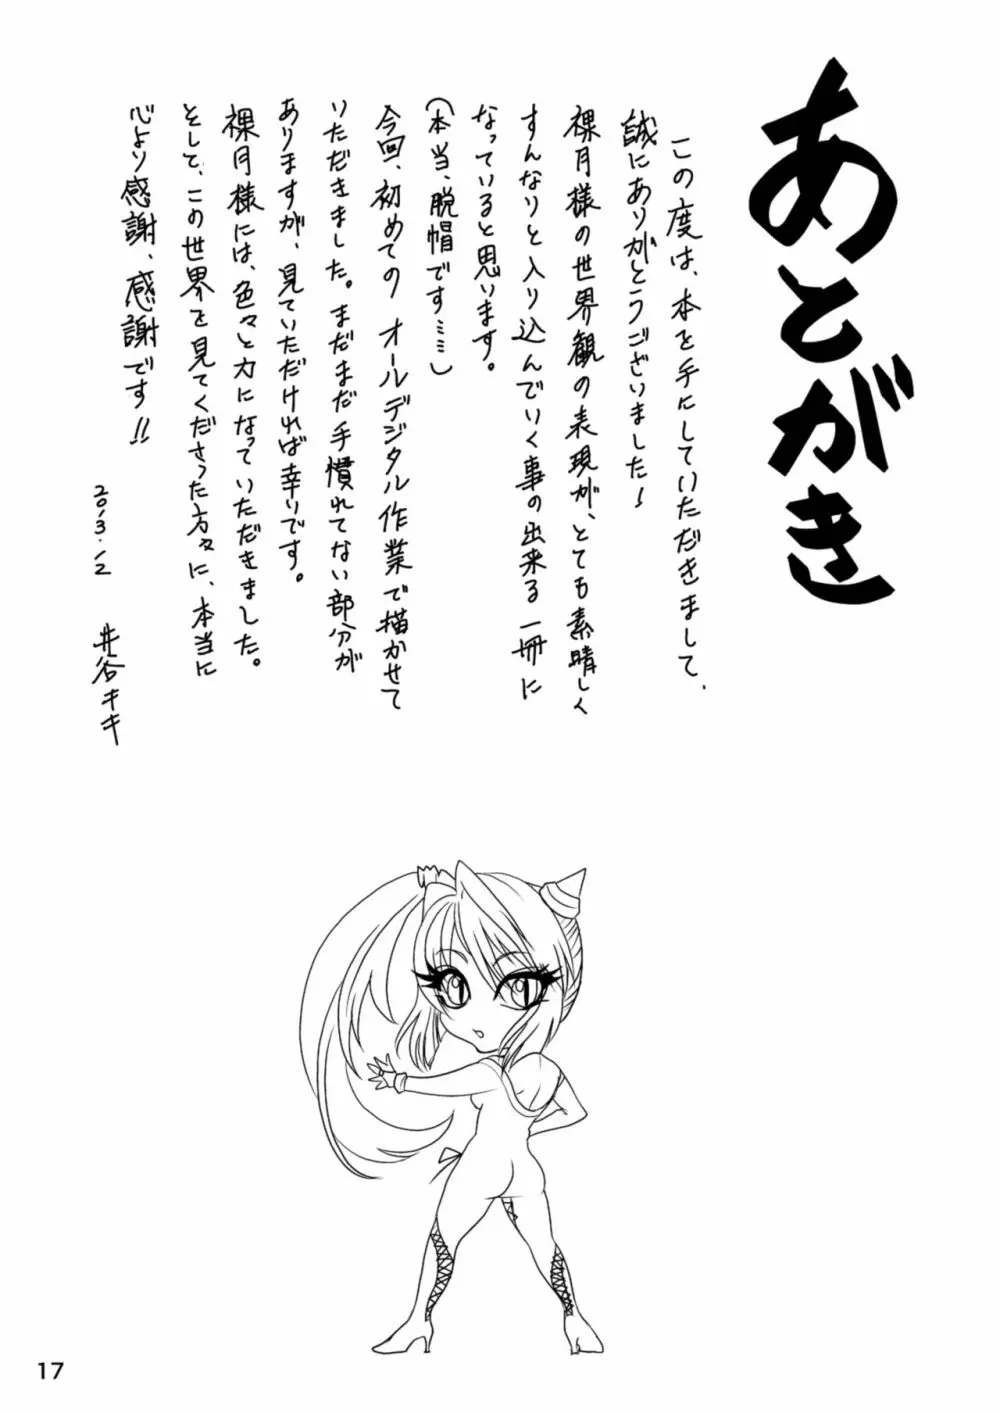 あとがき
この度は、本を手にしていただきまして、
誠にありがとうございました!
裸月様の世界観の表現が、とても素晴しく
すんなりと入り込んでいく事の出来る一冊に
なっていると思います。
(本当、脱帽です……)
今回、初めてのオールデジタル作業で描かせて
いただきました。まだまだ手慣れてない部分が
ありますが、見ていただければ幸いです。
裸月様には、色々と力になっていただきました。
そして、この世界を見てくださった方々に、本当に
心より感謝、感謝です!!
2013.12 井谷キキ
17